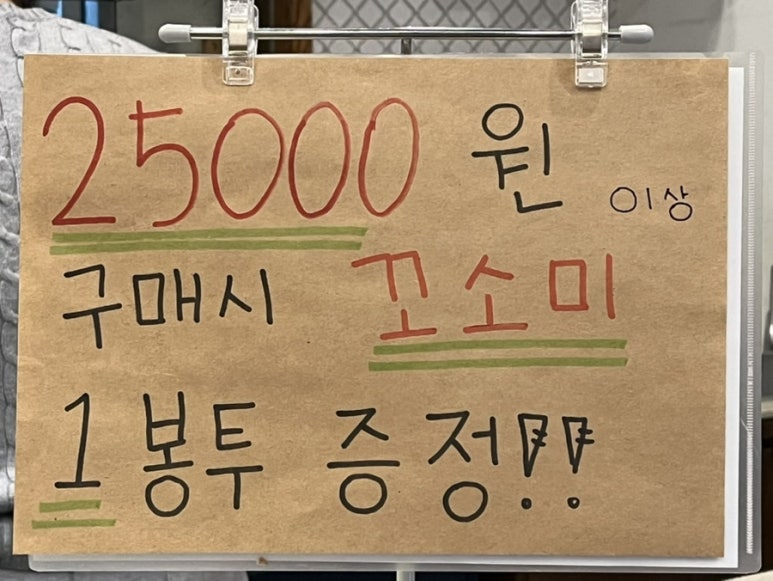 25000원 이상
구매시 꼬소미
1봉투 증정!!